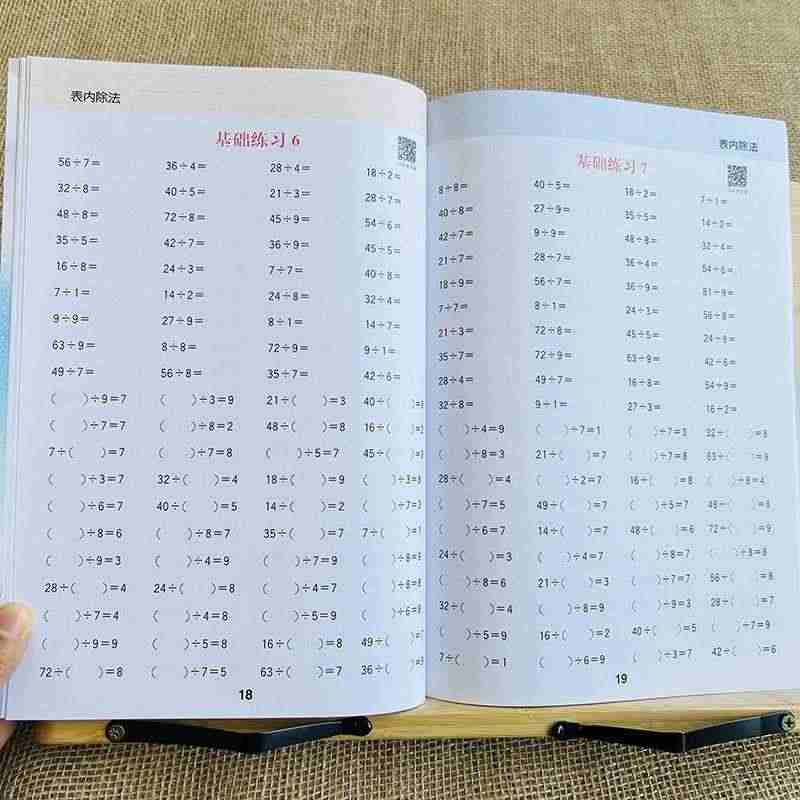 表内除法
基础练习 6
56÷7= 36÷4= 28÷4= 18÷2=
32÷8= 40÷5= 21÷3= 28÷7=
48÷8= 72÷8= 45÷9= 54÷6=
35÷5= 42÷7= 36÷9= 45÷5=
16÷8= 24÷3= 7÷7= 40÷8=
7÷1= 14÷2= 24÷8= 32÷4=
9÷9= 27÷9= 8÷1= 14÷7=
63÷9= 8÷8= 72÷9= 9÷1=
49÷7= 56÷8= 35÷7= 42÷6=
( )÷9=7 ( )÷3=9 21÷( )=3 40÷( )
( )÷7=7 ( )÷8=2 48÷( )=8 16÷( )
7÷( )=7 ( )÷7=8 ( )÷5=7 45÷( )
( )÷3=7 32÷( )=4 18÷( )=9 ( )÷3=
( )÷6=7 40÷( )=5 14÷( )=2 ( )÷7=
( )÷8=6 ( )÷8=7 35÷( )=7 7÷( )=1
( )÷9=3 ( )÷4=9 ( )÷7=9
28÷( )=4 24÷( )=8 ( )÷4=7
( )÷7=4 ( )÷4=8 ( )÷5=9
( )÷9=9 ( )÷5=8 16÷( )=8 49÷( )
72÷( )=8 ( )÷7=5 63÷( )=7 36÷( )
18
表内除法
基础练习 7
8÷8= 40÷5= 18÷2= 7÷1=
40÷8= 27÷9= 35÷5= 14÷2=
42÷7= 9÷9= 48÷8= 32÷4=
21÷7= 28÷7= 36÷4= 54÷6=
18÷9= 56÷7= 36÷9= 81÷9=
7÷7= 8÷1= 24÷3= 56÷8=
21÷3= 72÷8= 45÷5= 24÷8=
35÷7= 72÷9= 63÷9= 42÷6=
28÷4= 49÷7= 16÷8= 54÷9=
32÷8= 9÷1= 27÷3= 16÷2=
( )÷4=9 ( )÷7=1 ( )÷7=3 32÷( )=8
( )÷8=3 21÷( )=7 ( )÷7=8 63÷( )
28÷( )=4 ( )÷2=7 16÷( )=8
( )÷7=5 49÷( )=7 ( )÷5=7 48÷( )
( )÷6=7 14÷( )=7 48÷( )=6 72÷( )=9
24÷( )=3 ( )÷4=7 ( )÷8=7
( )÷8=6 21÷( )=3 ( )÷7=7 56÷( )
32÷( )=4 ( )÷8=9 ( )÷9=3 28÷( )=7
( )÷5=9 16÷( )=2 40÷( )=5 ( )÷7=9
7÷( )=1 ( )÷6=9 ( )÷3=7 42÷( )=6
19